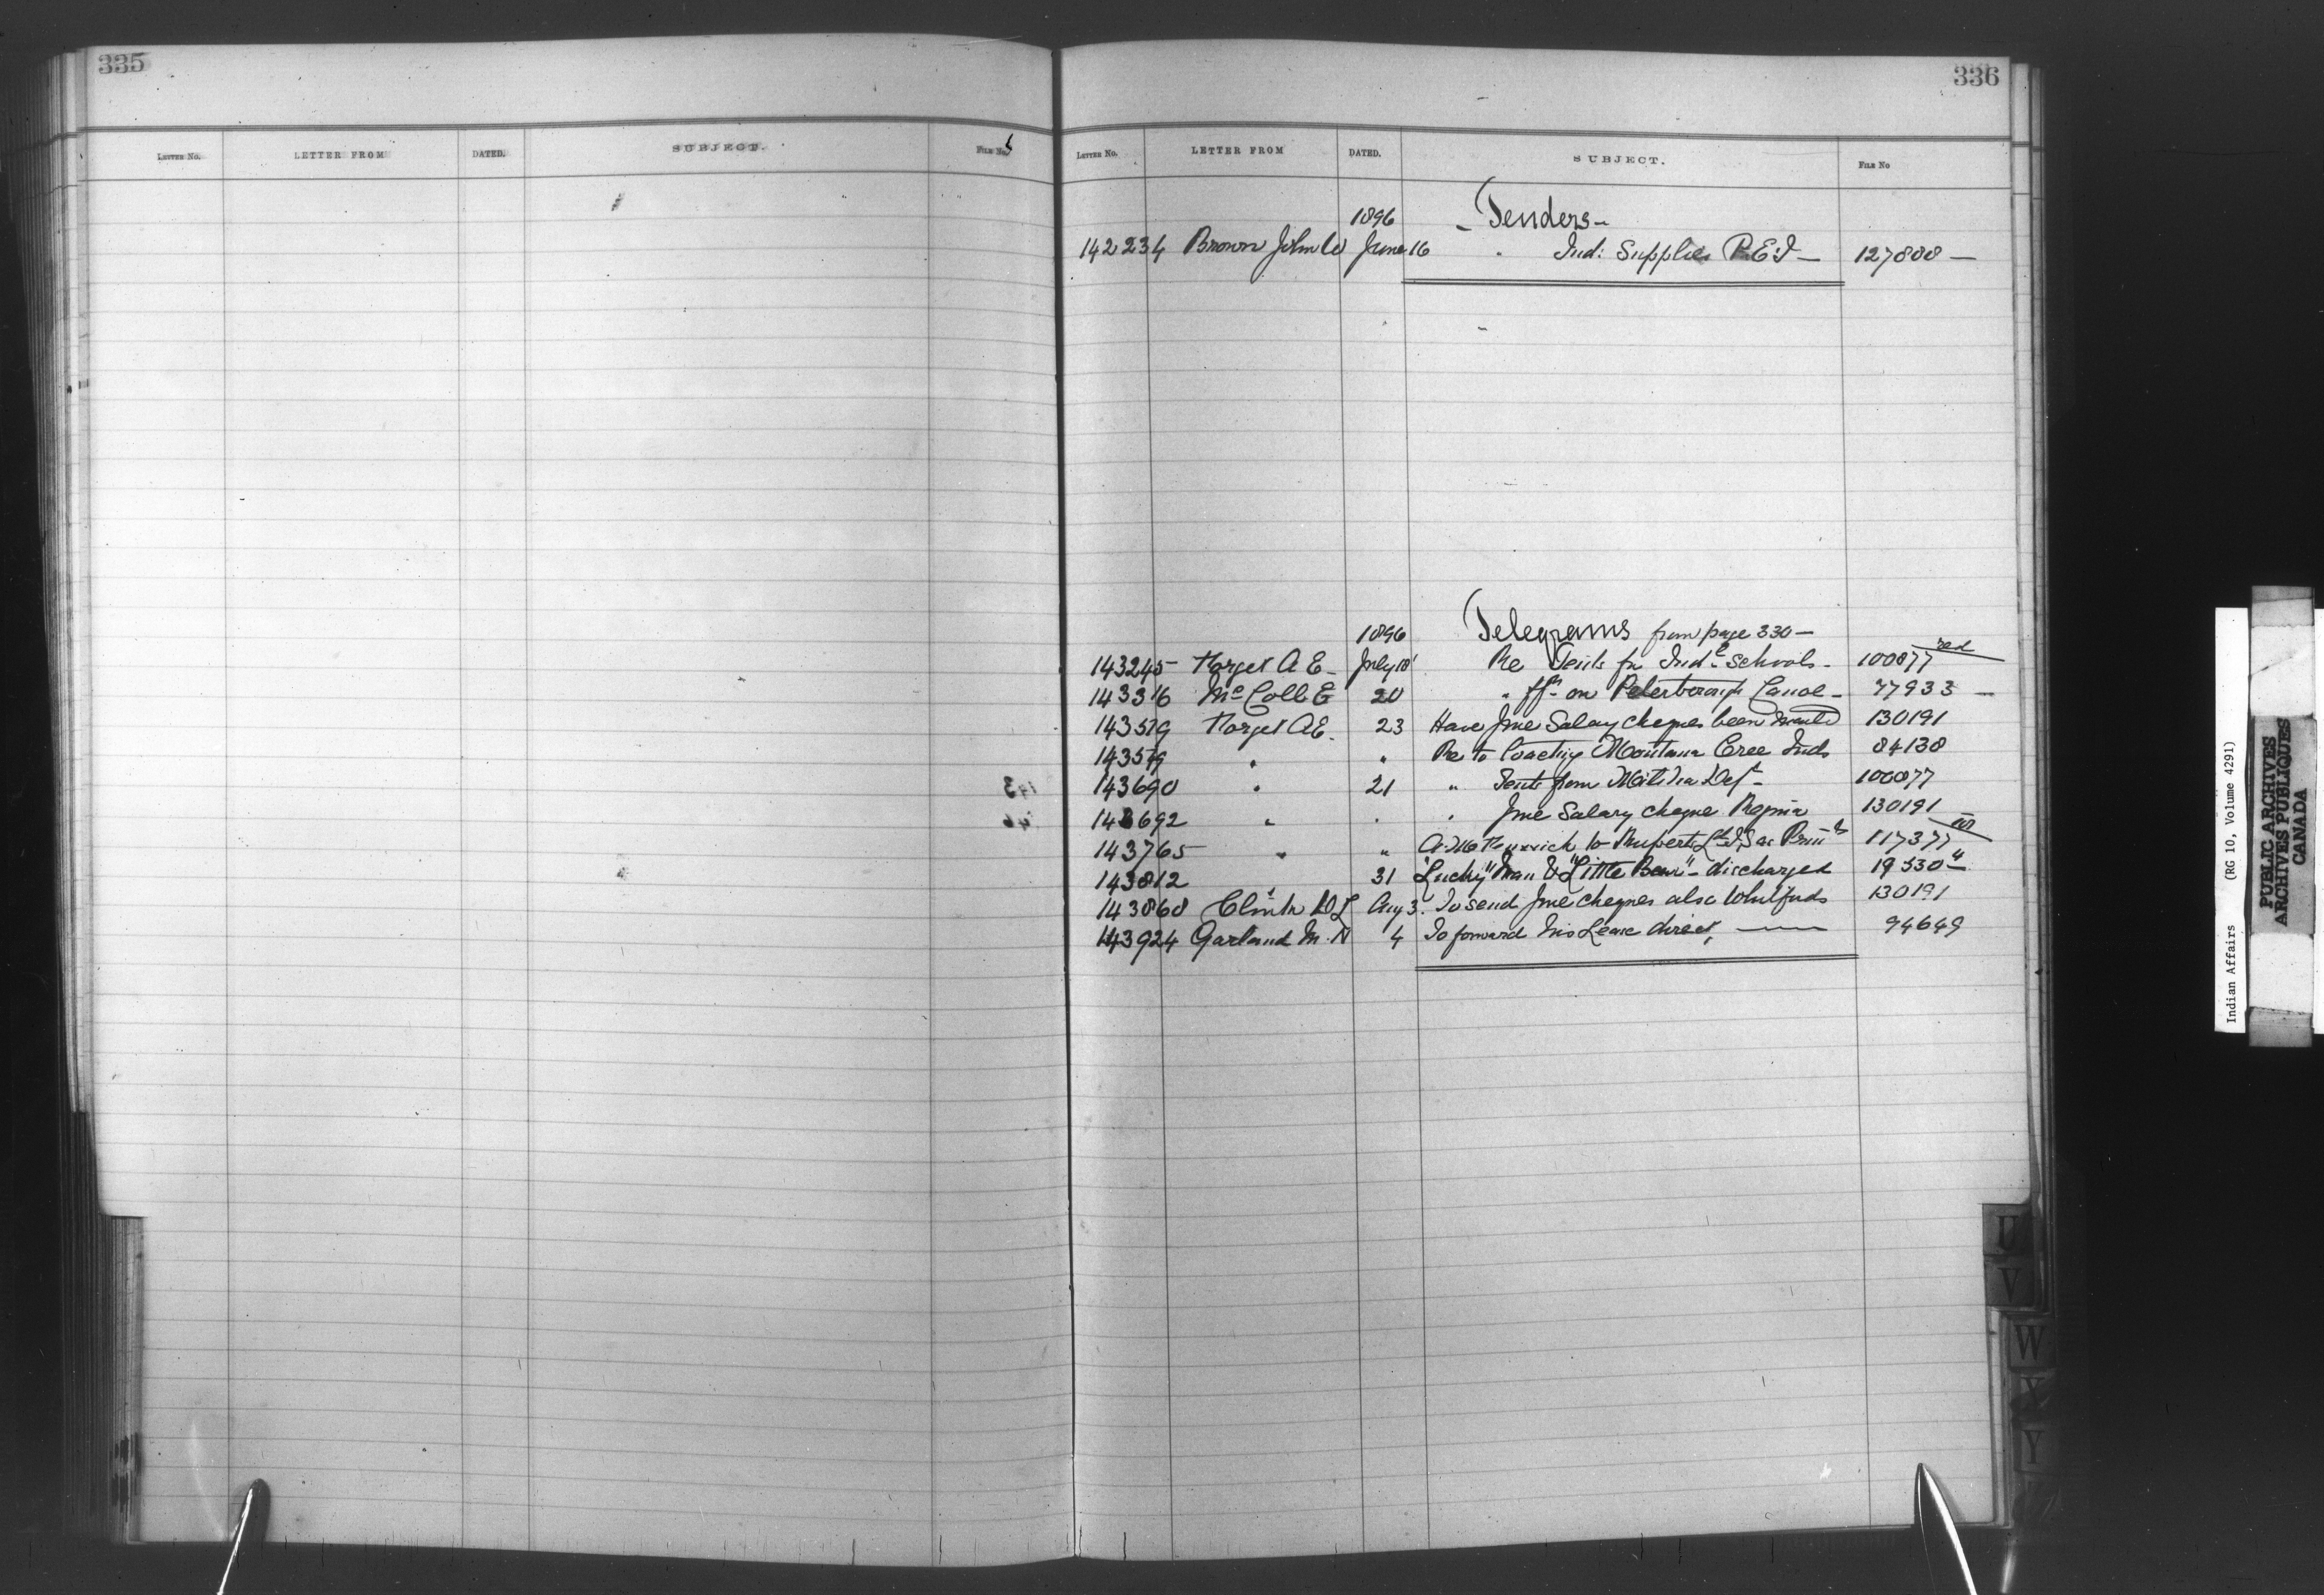 335
LETTER No. LETTER FROM DATED. SUBJECT. FILE No.
336
LETTER No. LETTER FROM DATED. SUBJECT. FILE No
1896 - Tenders -
142234 Brown John W June 16 " Ind: Supplies P.E.I - 127808 -
1896 Telegrams from page 330 -
143245 Forget A E - July 18 Re Tents for Ind:l Schools - 100877 red
143316 McColl E 20 " on Peterborough Canoe - 77933 -
143519 Forget A E - 23 Have June Salary cheques been 130191
143579 " " Re to Montana Cree Inds 84138
143690 " 21 " Tents from Militia Dept - 100877
143692 " " " June Salary cheque Regina 130191
143765 " " to Ruperts Ld 117377
143812 31 "Lucky Man" & "Little Bear" - discharged 19330
143868 D L Aug 3. To send June cheques also 130191
143924 Garland M. N 4 To forward his Lease direct, 94649
U
V
W
X
Y
Indian Affairs (RG 10, Volume 4291)
PUBLIC ARCHIVES
ARCHIVES PUBLIQUES
CANADA